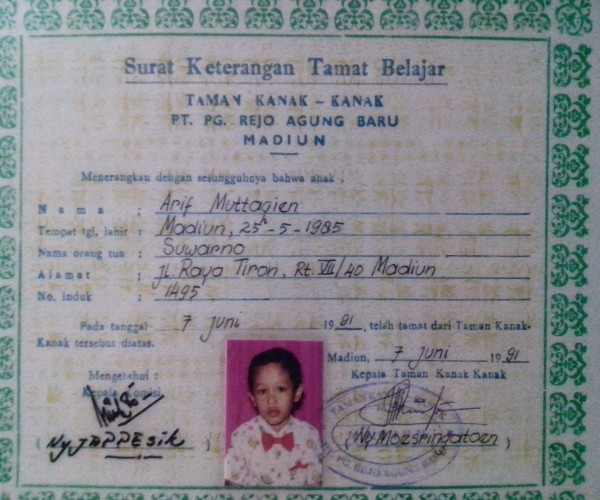 Surat Keterangan Tamat Belajar
TAMAN KANAK - KANAK
PT. PG. REJO AGUNG BARU
MADIUN
Menerangkan dengan sesungguhnya bahwa anak,
Nama : Arif Muttagien
Tempat tgl. lahir : Madiun, 25 - 5 - 1985
Nama orang tua : Suwarno
Alamat : Jl. Raya Tiron, Rt. VII/40 Madiun
No. induk : 1495
Pada tanggal 7 juni 19 91, telah tamat dari Taman Kanak-
Kanak tersebut diatas.
Madiun, 7 juni 19 91
Mengetahui : Kepala Taman Kanak Kanak
Kepala Komisi